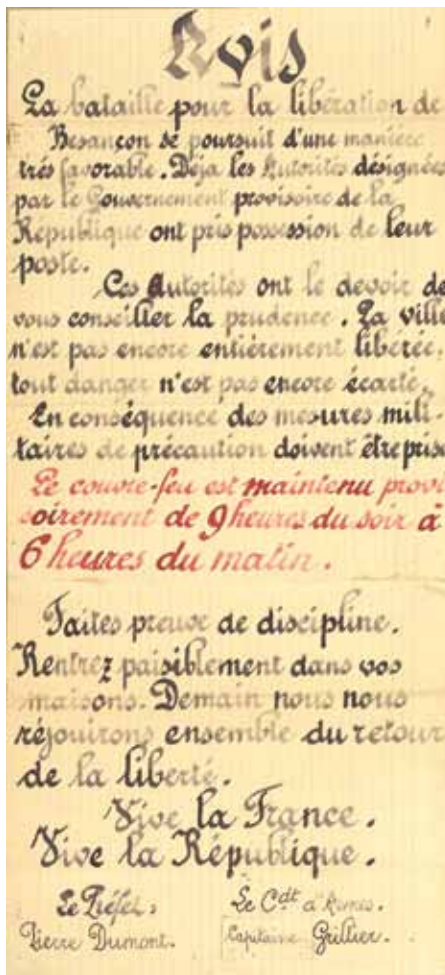 Avis
La bataille pour la libération de
Besançon se poursuit d'une manière
très favorable. Déja les Autorités désignées
par le Gouvernement provisoire de la
République ont pris possession de leur
poste.
Ces Autorités ont le devoir de
vous conseiller la prudence. La ville
n'est pas encore entièrement libérée,
tout danger n'est pas encore écarté.
En conséquence des mesures mili-
taires de précaution doivent être prise
Le couvre-feu est maintenu provi
soirement de 9 heures du soir à
6 heures du matin.
Faites preuve de discipline.
Rentrez paisiblement dans vos
maisons. Demain nous nous
réjouirons ensemble du retour
de la liberté.
Vive la France.
Vive la République.
Le Préfet: Le Cdt d'Armes.
Pierre Dumont. Capitaine Grillier.